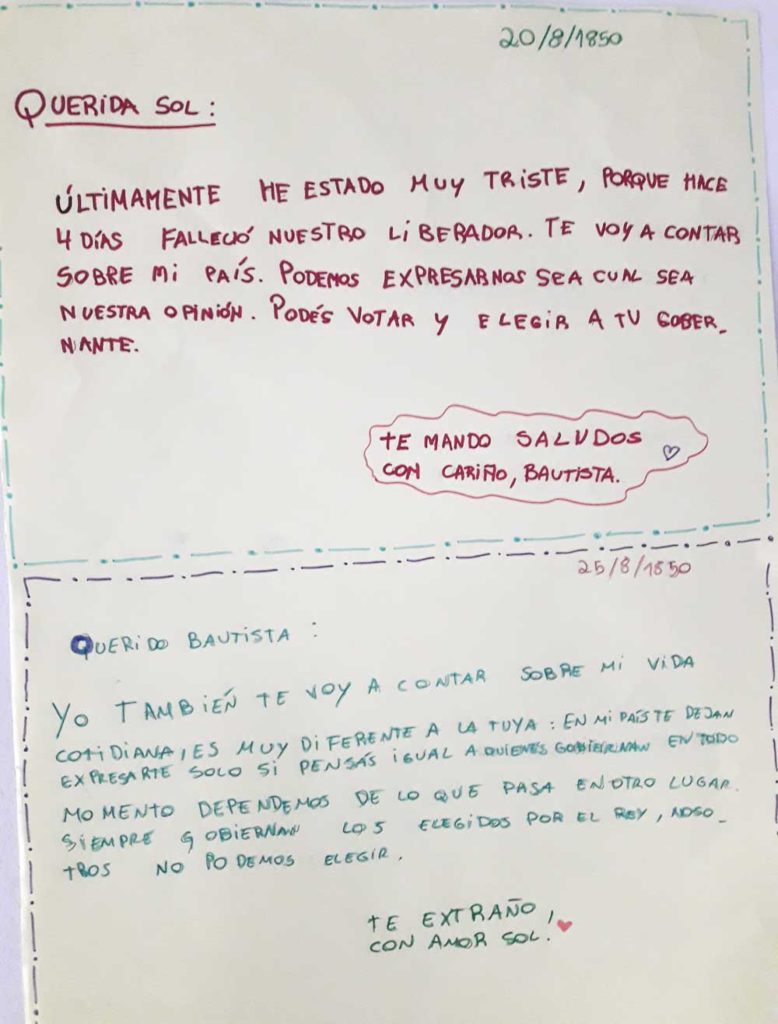 20/8/1850
QUERIDA SOL:
ÚLTIMAMENTE HE ESTADO MUY TRISTE, PORQUE HACE
4 DÍAS FALLECIÓ NUESTRO LIBERADOR. TE VOY A CONTAR
SOBRE MI PAÍS. PODEMOS EXPRESARNOS SEA CUAL SEA
NUESTRA OPINIÓN. PODÉS VOTAR Y ELEGIR A TU GOBER_
NANTE.
TE MANDO SALUDOS
CON CARIÑO, BAUTISTA.
25/8/1850
QUERIDO BAUTISTA:
YO TAMBIÉN TE VOY A CONTAR SOBRE MI VIDA
COTIDIANA, ES MUY DIFERENTE A LA TUYA: EN MI PAÍS TE DEJAN
EXPRESARTE SOLO SI PENSÁS IGUAL A QUIENES GOBIERNAN EN TODO
MOMENTO DEPENDEMOS DE LO QUE PASA EN OTRO LUGAR.
SIEMPRE GOBIERNAN LOS ELEGIDOS POR EL REY, NOSO_
TROS NO PODEMOS ELEGIR.
TE EXTRAÑO,
CON AMOR SOL.